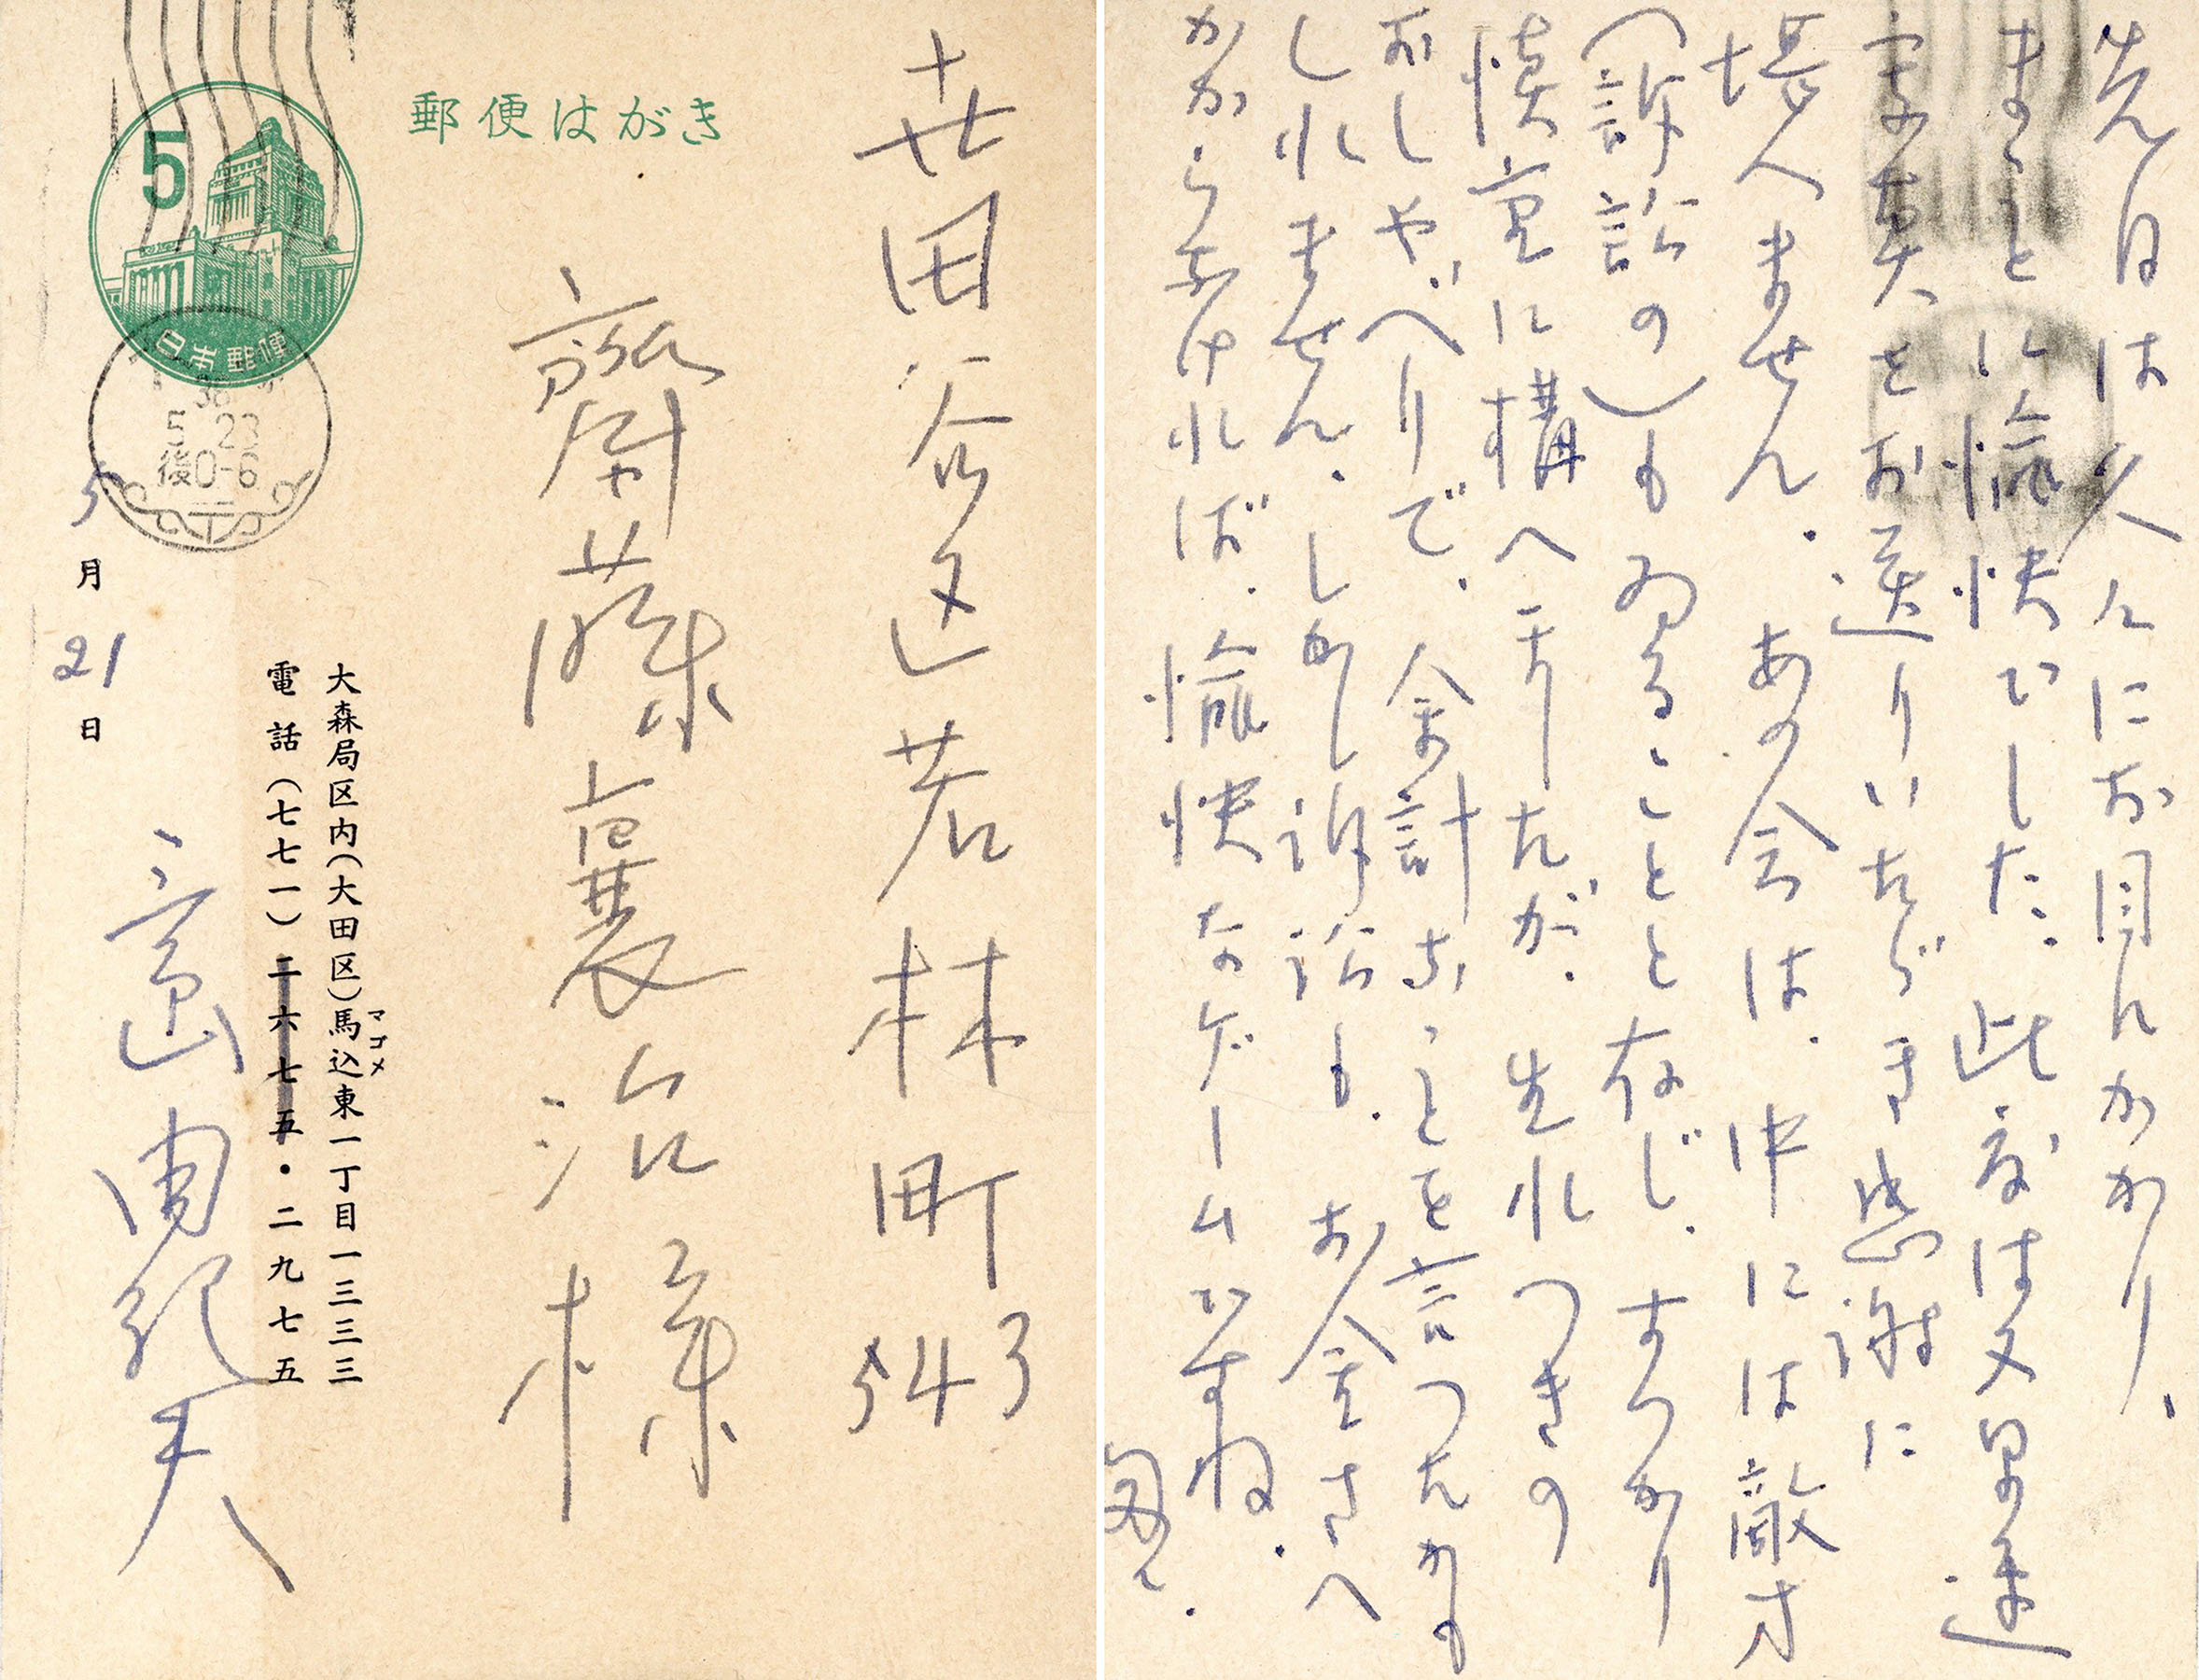 郵便はがき
5
日本郵便
36
5 23
後0-6
世田谷区若林町543
齋藤襄治様
大森局区内(大田区)馬込東一丁目一三三三
マゴメ
電話(七七一)二六七五・二九七五
5月21日
三島由紀夫
先日は久々にお目にかかり、
まことに愉快でした。此度は又早速
写真をお送りいたゞき感謝に
堪へません。あの会は、中には敵方
(訴訟の)もゐることと存じ、すつかり
慎重に構へましたが、生れつきの
おしやべりで、余計なことを言つたかも
しれません。しかし訴訟も、お金さへ
かからなければ、愉快なゲームですね。
匆々